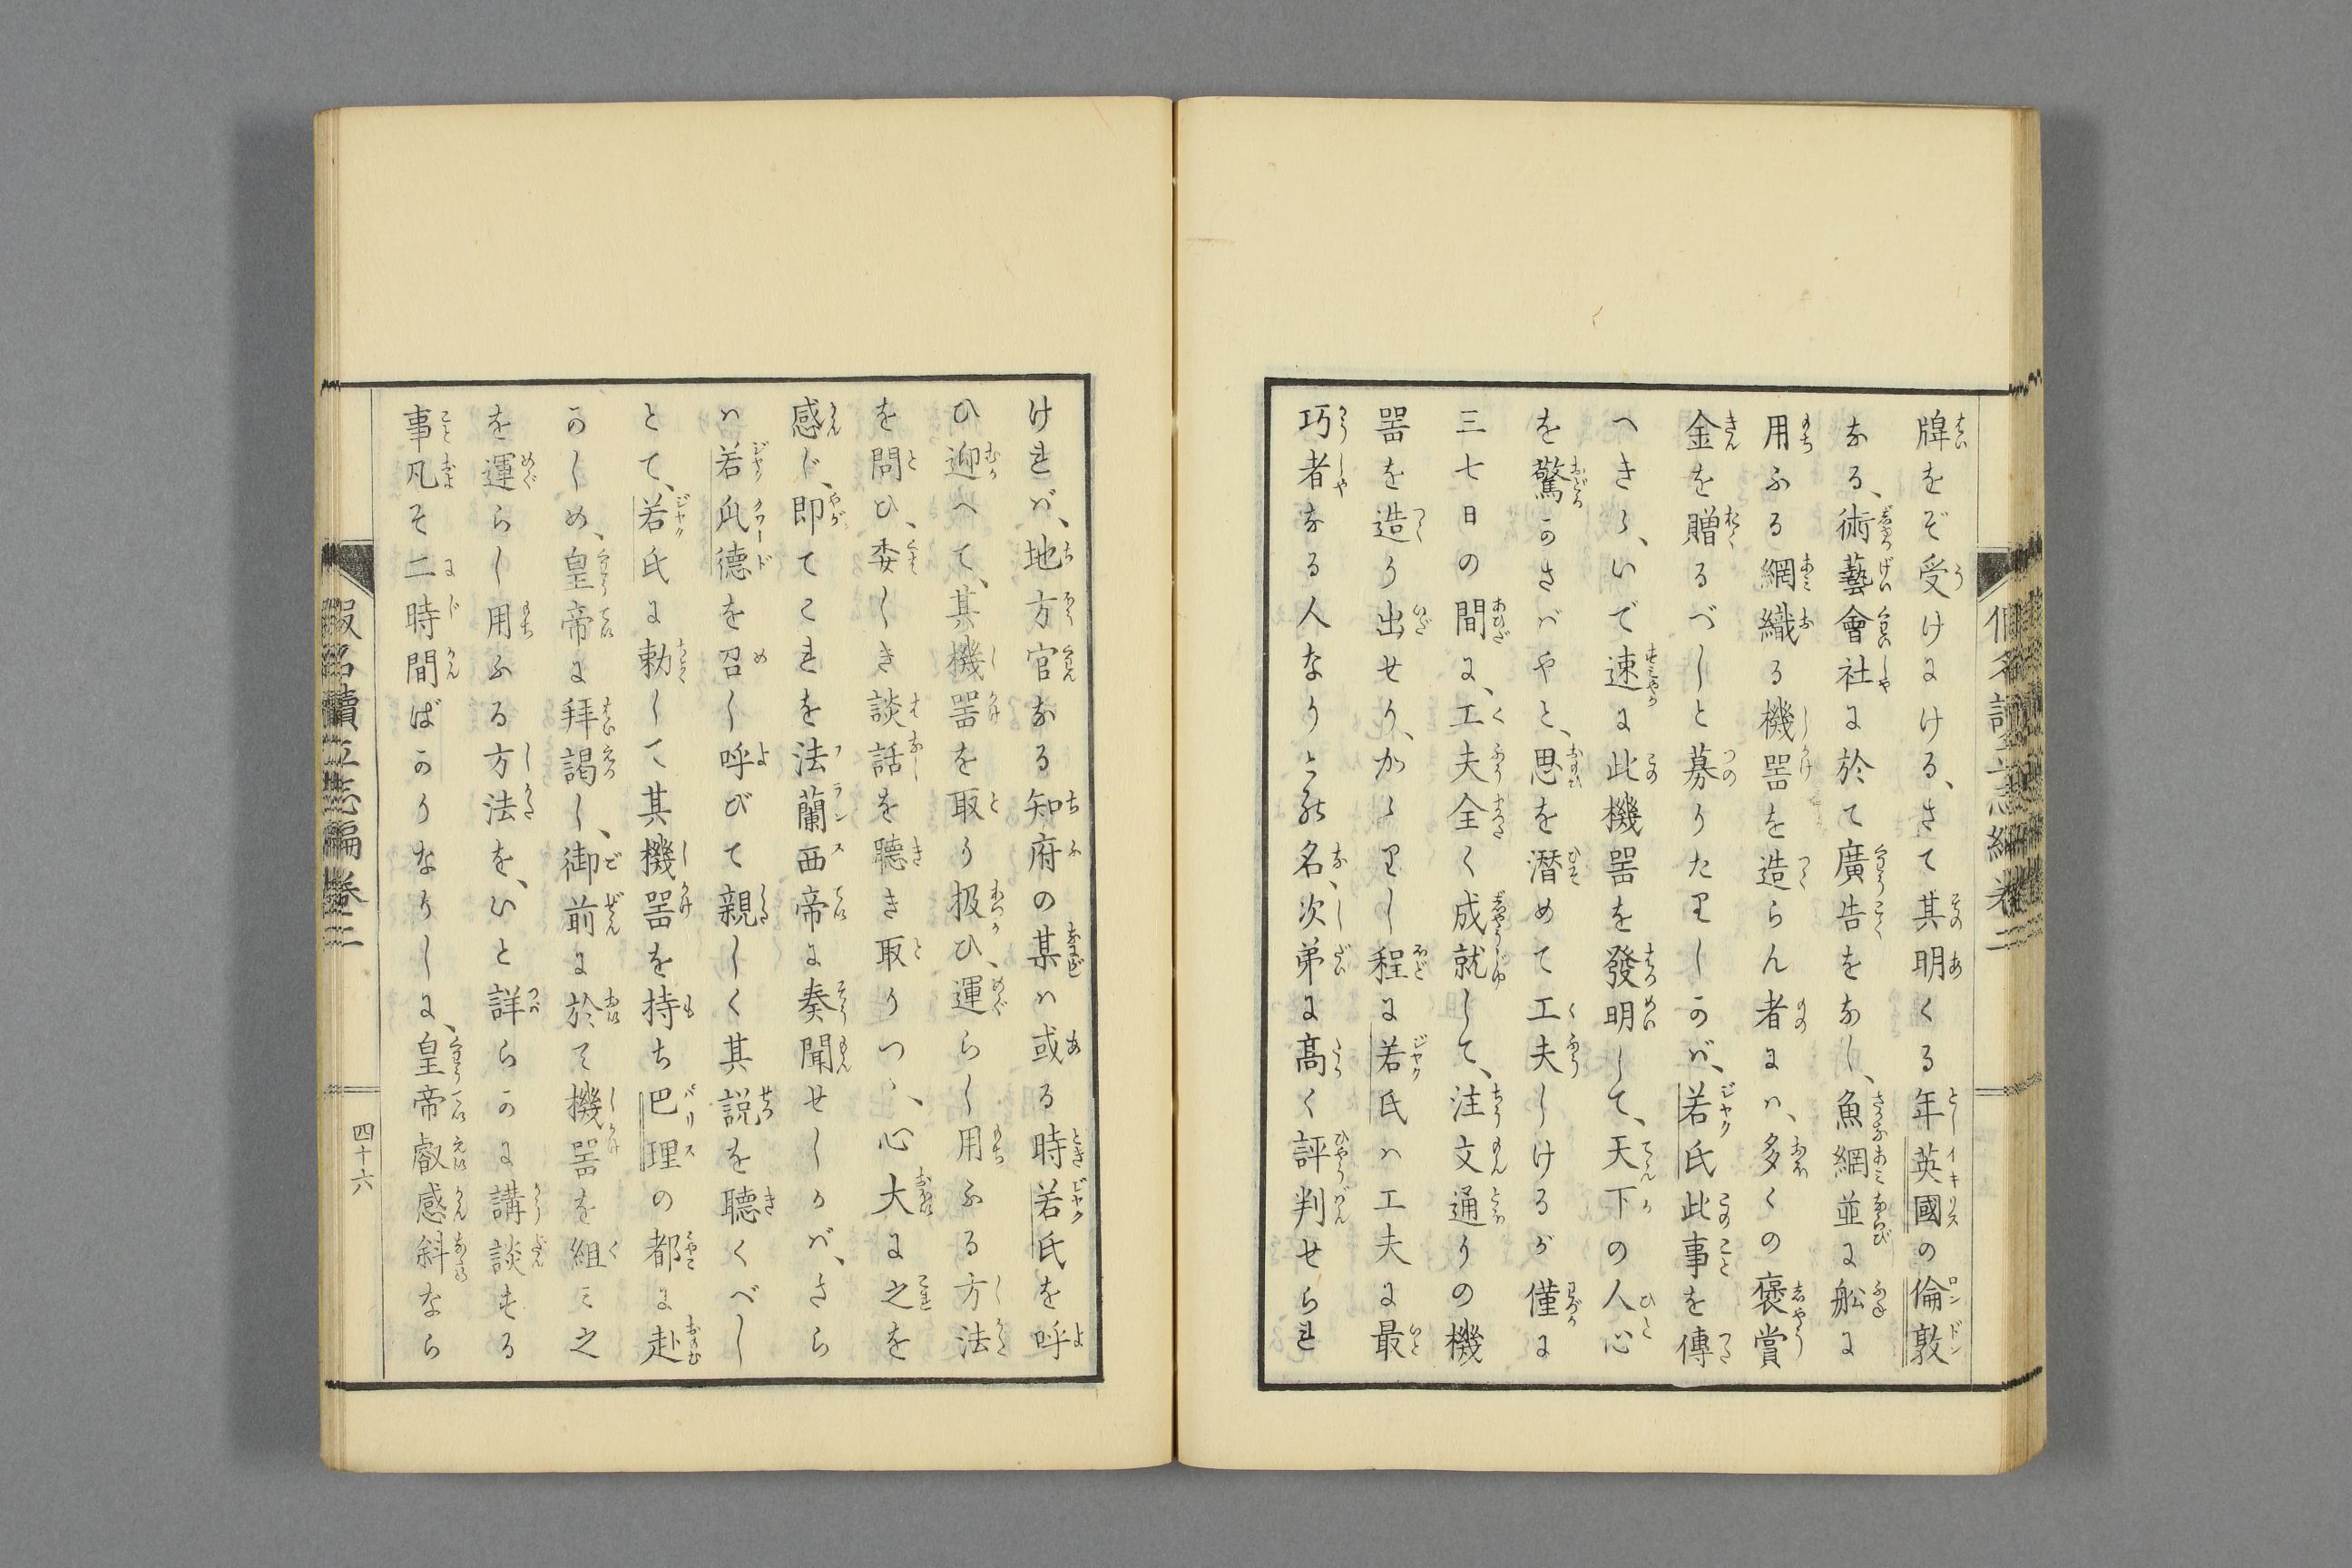 牌をぞ受けにける、さて其明くる年英國の倫敦
なる、術藝會社に於て廣告をなし、魚網並に舩に
用ふる網織る機噐を造らん者にハ、多くの褒賞
金を贈るべしと募りたりしかバ、若氏此事を傳
へきゝ、いで速に此機噐を發明して、天下の人心
を驚かさバやと、思を潜めて工夫しけるが僅に
三七日の間に、工夫全く成就して、注文通りの機
噐を造り出せり、かゝりし程に若氏ハ工夫に最
巧者なる人なりとぞ名、次第に高く評判せられ
けれバ、地方官なる知府の某ハ或る時若氏を呼
ひ迎へて、其機噐を取り扱ひ、運らし用ふる方法
を問ひ、委しき談話を聽き取りつゝ、心大に之を
感じ、即てこれを法蘭西帝に奏聞せしかバ、さら
ハ若氏德を召し呼びて親しく其説を聽くべし
とて、若氏に勅して其機噐を持ち巴理の都に赴
かしめ、皇帝に拜謁し、御前に於て機噐を組ミ之
を運らし用ふる方法を、いと詳らかに講談する
事凡そ二時間ばかりなりしに、皇帝叡感斜なら
假名讀立志編 卷二
四十六